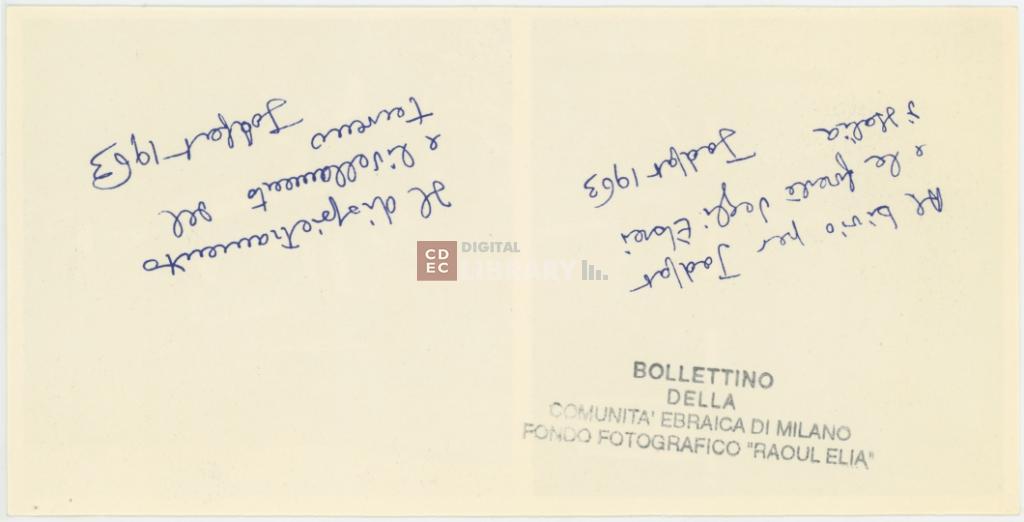 Il dispietramento
e livellamento del
terreno Jodfat 1963
Al bivio per Jodfat
e la foresta degli Ebrei
d'Italia Jodfat 1963
CD
EC
DIGITAL
LIBRARY
BOLLETTINO
DELLA
COMUNITA' EBRAICA DI MILANO
FONDO FOTOGRAFICO "RAOUL ELIA"